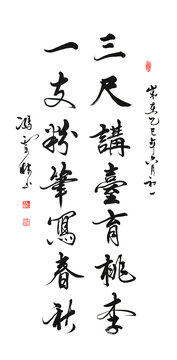 歲在乙巳年六月初一
三尺講臺育桃李
一支粉筆寫春秋